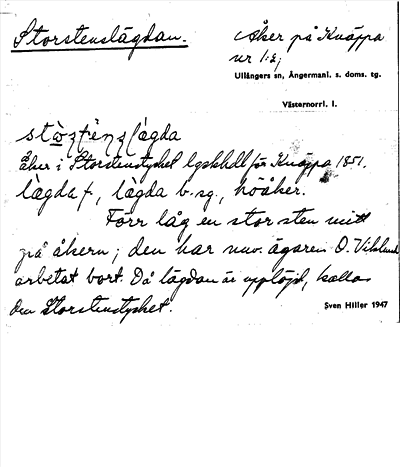 Storstenslägdan.
Åker på Knäppa
nr 1:2;
Ullångers sn, Ångermanl. s. doms. tg.
Västernorrl. l.
Åker i Storstenstycket lgskhdl för Knäppa 1851.
lägda f., lägda b. sg., höåker.
Förr låg en stor sten mitt
på åkern; den har nuv. ägaren O. Viklund
arbetat bort. Då lägdan är upplöjd, kallas
den Storstenstycket.
Sven Hiller 1947